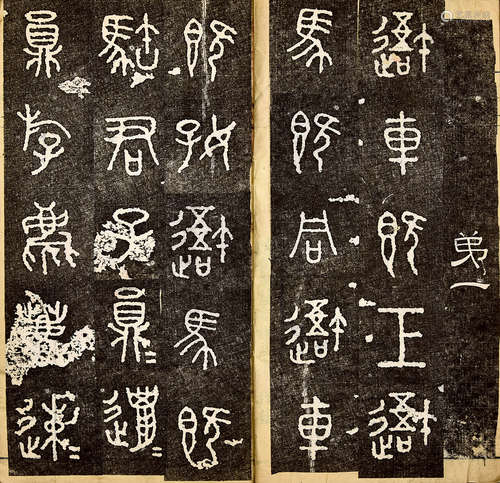 弟一
吾車既工吾
馬既同吾車
既好吾馬既
君子員邋
員斿麀鹿速